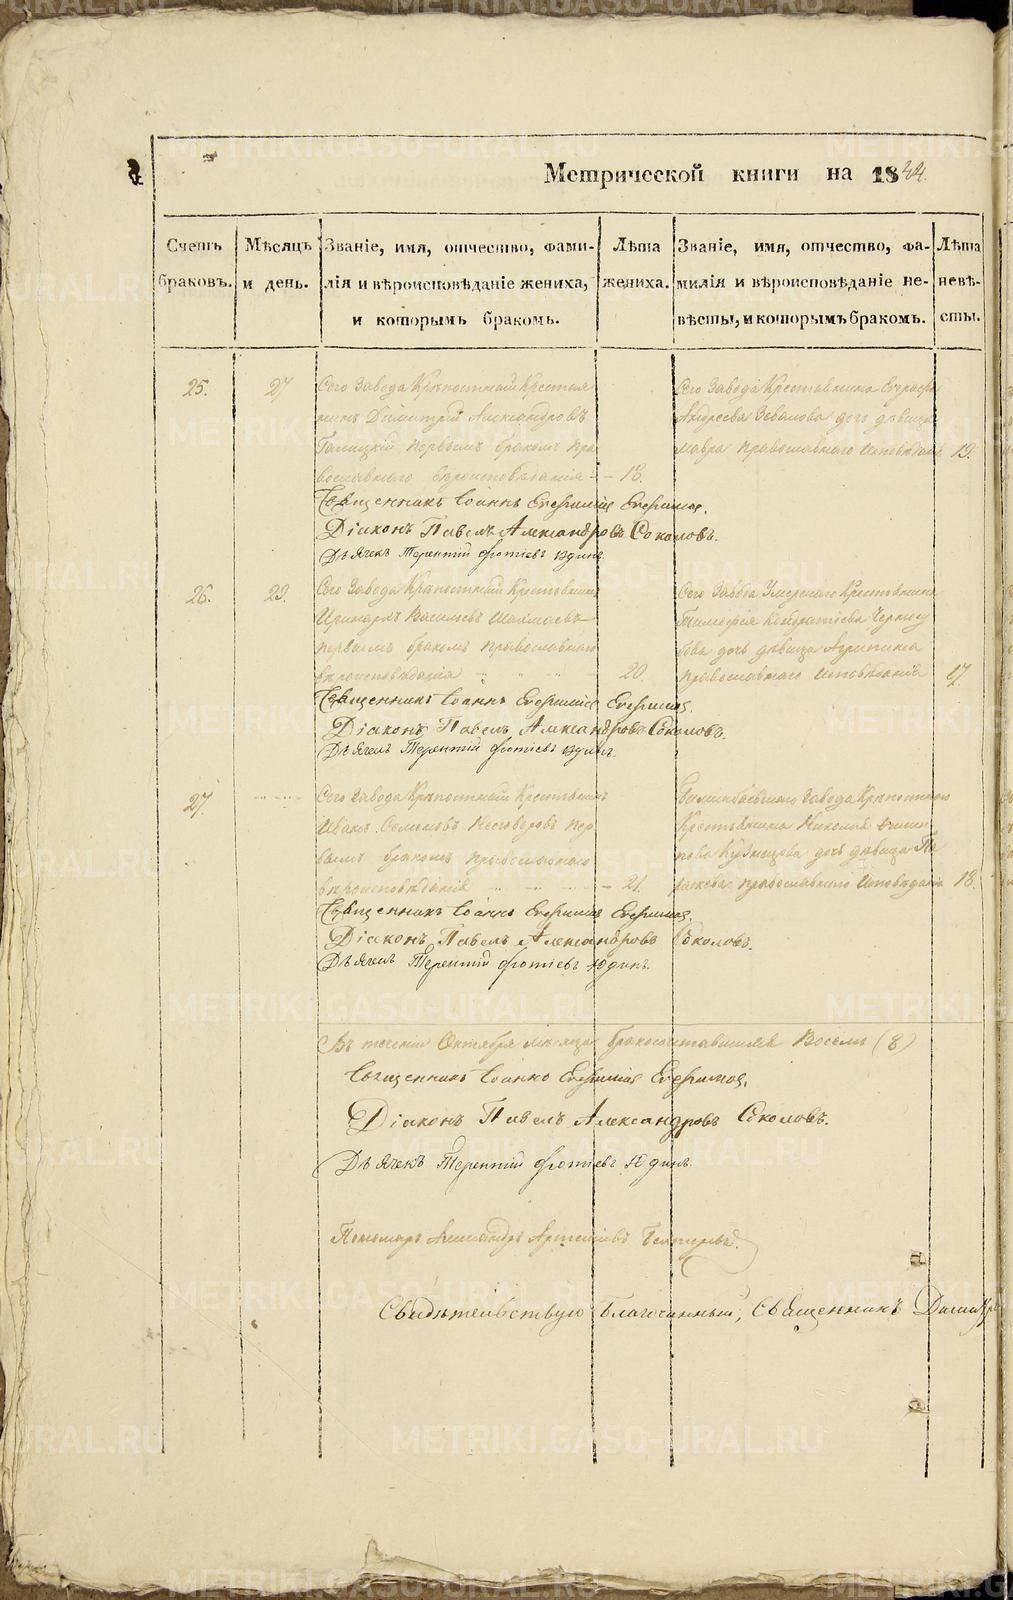 Метрической книги на 1844.
Счетъ браковъ.
Мѣсяцъ и день.
Званіе, имя, отчество, фами-
лія и вѣроисповѣданіе жениха,
и которымъ бракомъ.
Лѣта жениха.
Званіе, имя, отчество, фа-
милія и вѣроисповѣданіе не-
вѣсты, и которымъ бракомъ.
Лѣта невѣ-
сты.
25. 27
Сего Завода Крѣпостный Крестья
нинъ Димитрій Александровъ
Галицкій первымъ бракомъ пра
вославнаго вѣроисповѣданія - 18.
Сего Завода Крестьянина
Андреева дочь дѣвица
Мавра православнаго исповѣданія 19.
Священникъ Іоаннъ Евфиміев Евфимов.
Діаконъ Павелъ Александровъ Соколовъ.
Дьячекъ Терентій Фотіевъ Юдинъ.
26. 29.
Сего Завода Крѣпостный Крестьянинъ
Иринархъ Васильевъ
первымъ бракомъ православнаго
вѣроисповѣданія 20.
Сего Завода Умершаго Крестьянина
Тимофея Кондратьева
дочь дѣвица Агрипина
православнаго исповѣданія 17.
Священникъ Іоаннъ Евфиміев Евфимов.
Діаконъ Павелъ Александровъ Соколовъ.
Дьячекъ Терентій Фотіевъ Юдинъ.
27.
Сего Завода Крѣпостный Крестьянинъ
Иванъ Семеновъ пер
вымъ бракомъ православнаго
вѣроисповѣданія - 21.
Билимбаевскаго Завода Крѣпостнаго
Крестьянина Николая
Кузнецова дочь дѣвица Па
раскева православнаго исповѣданія 18.
Священникъ Іоаннъ Евфиміев Евфимов.
Діаконъ Павелъ Александровъ Соколовъ.
Дьячекъ Терентій Фотіевъ Юдинъ.
Въ теченіи Октября мѣсяца бракосочетавшихся Восемь (8)
Священникъ Іоаннъ Евфиміев Евфимов.
Діаконъ Павелъ Александровъ Соколовъ.
Дьячекъ Терентій Фотіевъ Юдинъ.
Пономарь Александръ
Свидѣтельствую Благочинный, Священникъ
METRIKI.GASO-URAL.RU